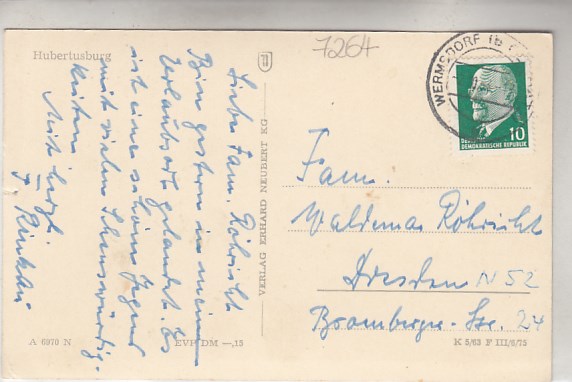 7264
Hubertusburg
Liebe Fam. Röhricht
Bin gestern in meinem
Urlaubsort gelandet. Es
ist eine schöne Gegend
mit vielen Sehenswürdig-
keiten
Mit herzl.
F.
VERLAG ERHARD NEUBERT KG
WERMSDORF (b
10
DEMOKRATISCHE REPUBLIK
Fam.
Waldemar Röhricht
Dresden N 52
Bramberger-Str. 24
A 6970 N
EVP DM —,15
K 5/63 F III/6/75